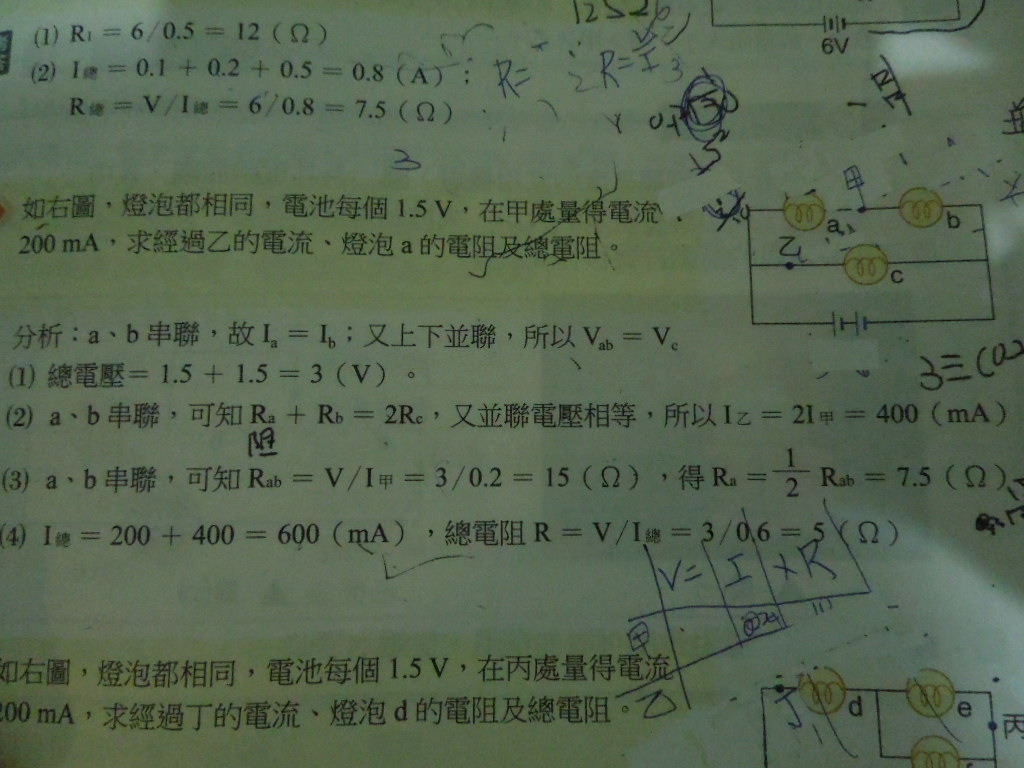 (1) R₁ = 6/0.5 = 12 (Ω)
(2) I總 = 0.1 + 0.2 + 0.5 = 0.8 (A);
R總 = V/I總 = 6/0.8 = 7.5 (Ω)
R=
R=
3
6V
如右圖,燈泡都相同,電池每個 1.5 V,在甲處量得電流
200 mA,求經過乙的電流、燈泡 a 的電阻及總電阻。
甲
a
b
乙
c
分析:a、b 串聯,故 Iₐ = I_b;又上下並聯,所以 V_ab = V_c
(1) 總電壓= 1.5 + 1.5 = 3 (V)。
(2) a、b 串聯,可知 Ra + Rb = 2Rc,又並聯電壓相等,所以 I乙 = 2I甲 = 400 (mA)
阻
(3) a、b 串聯,可知 Rab = V/I甲 = 3/0.2 = 15 (Ω),得 Ra = 1/2 Rab = 7.5 (Ω)
(4) I總 = 200 + 400 = 600 (mA),總電阻 R = V/I總 = 3/0.6 = 5 (Ω)
V= I × R
甲
乙
如右圖,燈泡都相同,電池每個 1.5 V,在丙處量得電流
200 mA,求經過丁的電流、燈泡 d 的電阻及總電阻。
丁
d
e
丙